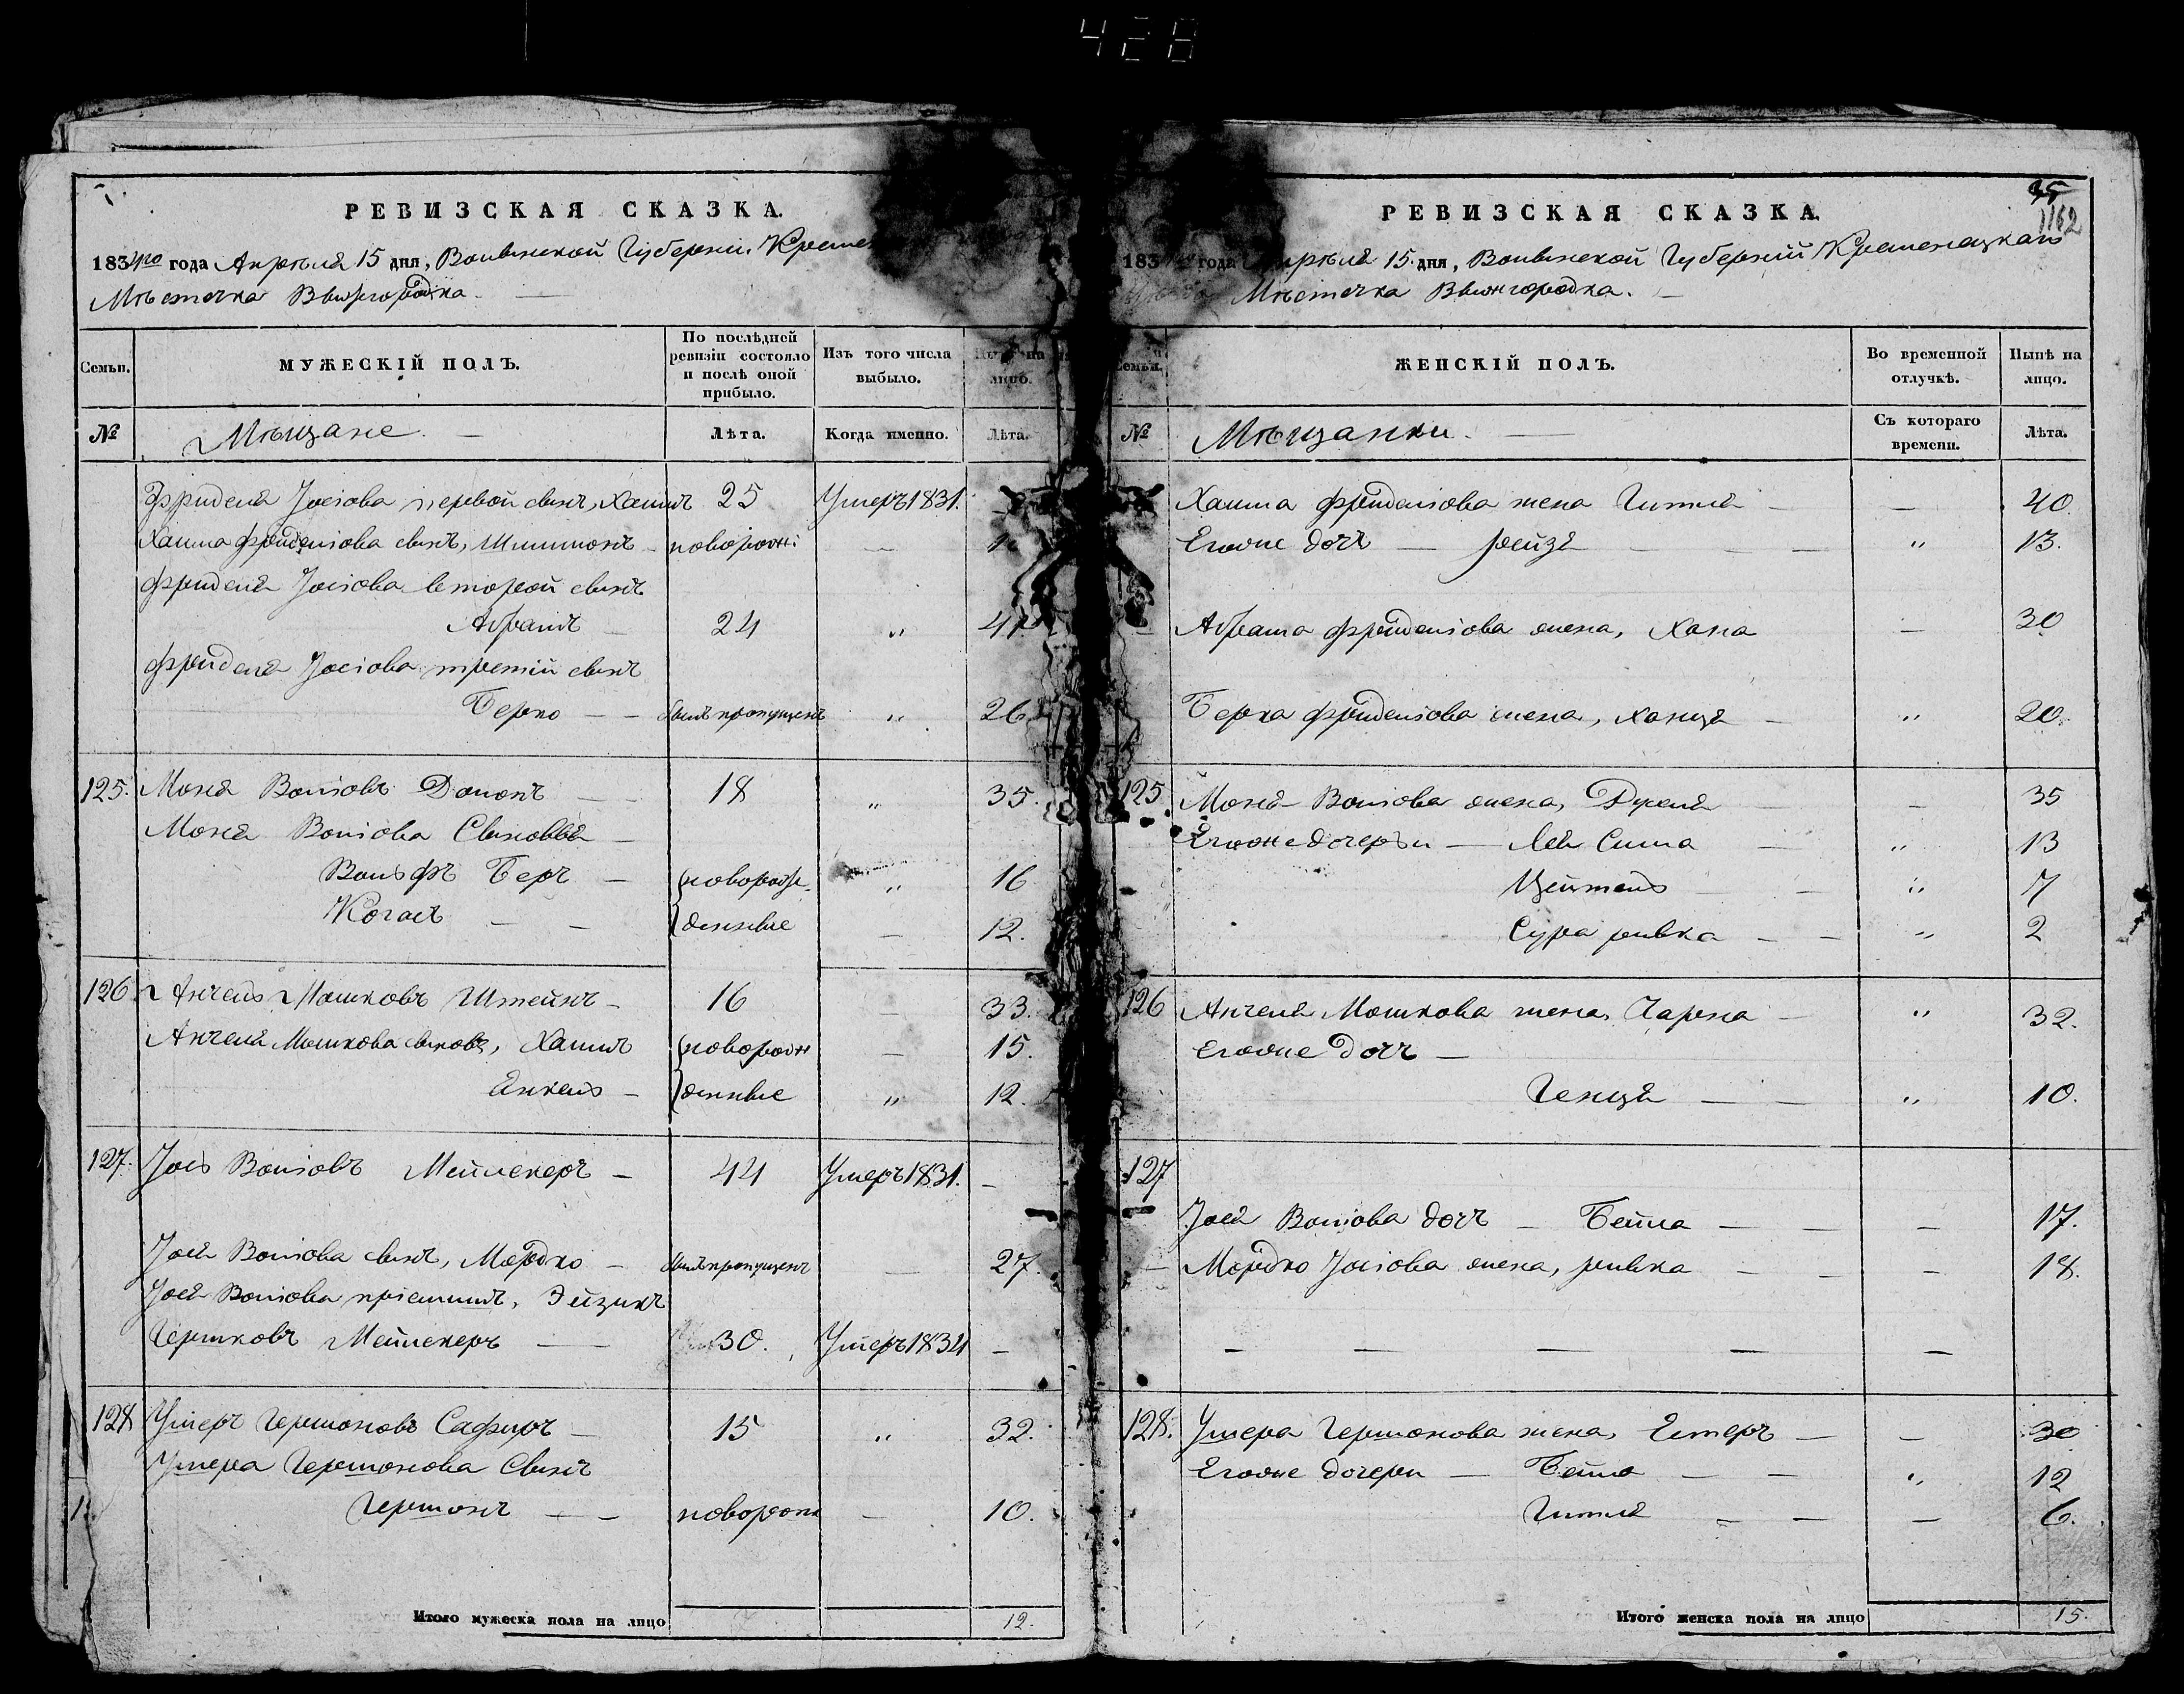 428
РЕВИЗСКАЯ СКАЗКА.
1834го года Апрѣля 15 дня, Волынской Губерніи
Мѣстечка Вышгородка.
Семьи.
МУЖЕСКІЙ ПОЛЪ.
По послѣдней ревизіи состояло и послѣ оной прибыло.
Изъ того числа выбыло.
лицо.
№
Мѣщане.
Лѣта.
Когда именно.
Лѣта.
Фридель Іосіова первой сынъ, Хаимъ 25 Умеръ 1831.
Хаима Фриделіова сынъ, Шлиомонъ новорож:
Фридель Іосіова второй сынъ
Абрамъ 24 „
Фридель Іосіова третій сынъ
Берко былъ пропущенъ „ 26
125. Моня Воліовъ 18 „ 35.
Моня Воліова Сыновья
Вольфъ Беръ новорож- „ 16
денные — 12.
126 Анчель Мошковъ Штейнъ 16 — 33.
Анчеля Мошкова сыновья, Хаимъ новорож — 15.
Янкель денные „ 12.
127. Іось Воліовъ Мейлекеръ 44 Умеръ 1831. —
Іося Воліова сынъ, Мордко былъ пропущенъ — 27.
Іося Воліова пріемышъ, Эйзикъ
Гершковъ Мейлекеръ 30. Умеръ 1834 —
128 Умеръ Гершоновъ Сафиръ 15 „ 32.
Умера Гершонова Сынъ
Гершонъ новорожд — 10.
Итого мужеска пола на лицо 12.
35
1162
РЕВИЗСКАЯ СКАЗКА.
183 года Апрѣля 15 дня, Волынской Губерніи Кременецкаго
Мѣстечка Вышгородка.
Семьи.
ЖЕНСКІЙ ПОЛЪ.
Во временной отлучкѣ.
Нынѣ на лицо.
№
Мѣщанки.
Съ котораго времени.
Лѣта.
Хаима Фриделіова жена Гитля — 40
Егоже дочъ — Рейзя „ 13.
Абрама Фриделіова жена, Хана — 30
Берка Фриделіова жена, Ханця „ 20.
125 Моня Воліова жена, — 35
Егоже дочеръи — Лея Сима „ 13
Цейтель „ 7
Сура Ривка „ 2
126 Анчеля Мошкова жена, Чарна „ 32.
Егоже дочъ —
Генця „ 10.
127
Іося Воліова дочъ — Бейла — 17.
Мордко Іосіова жена, Ривка — 18.
128. Умера Гершонова жена, Естеръ — 30
Егоже дочери — Бейла „ 12
Гитля — 6.
Итого женска пола на лицо 15.